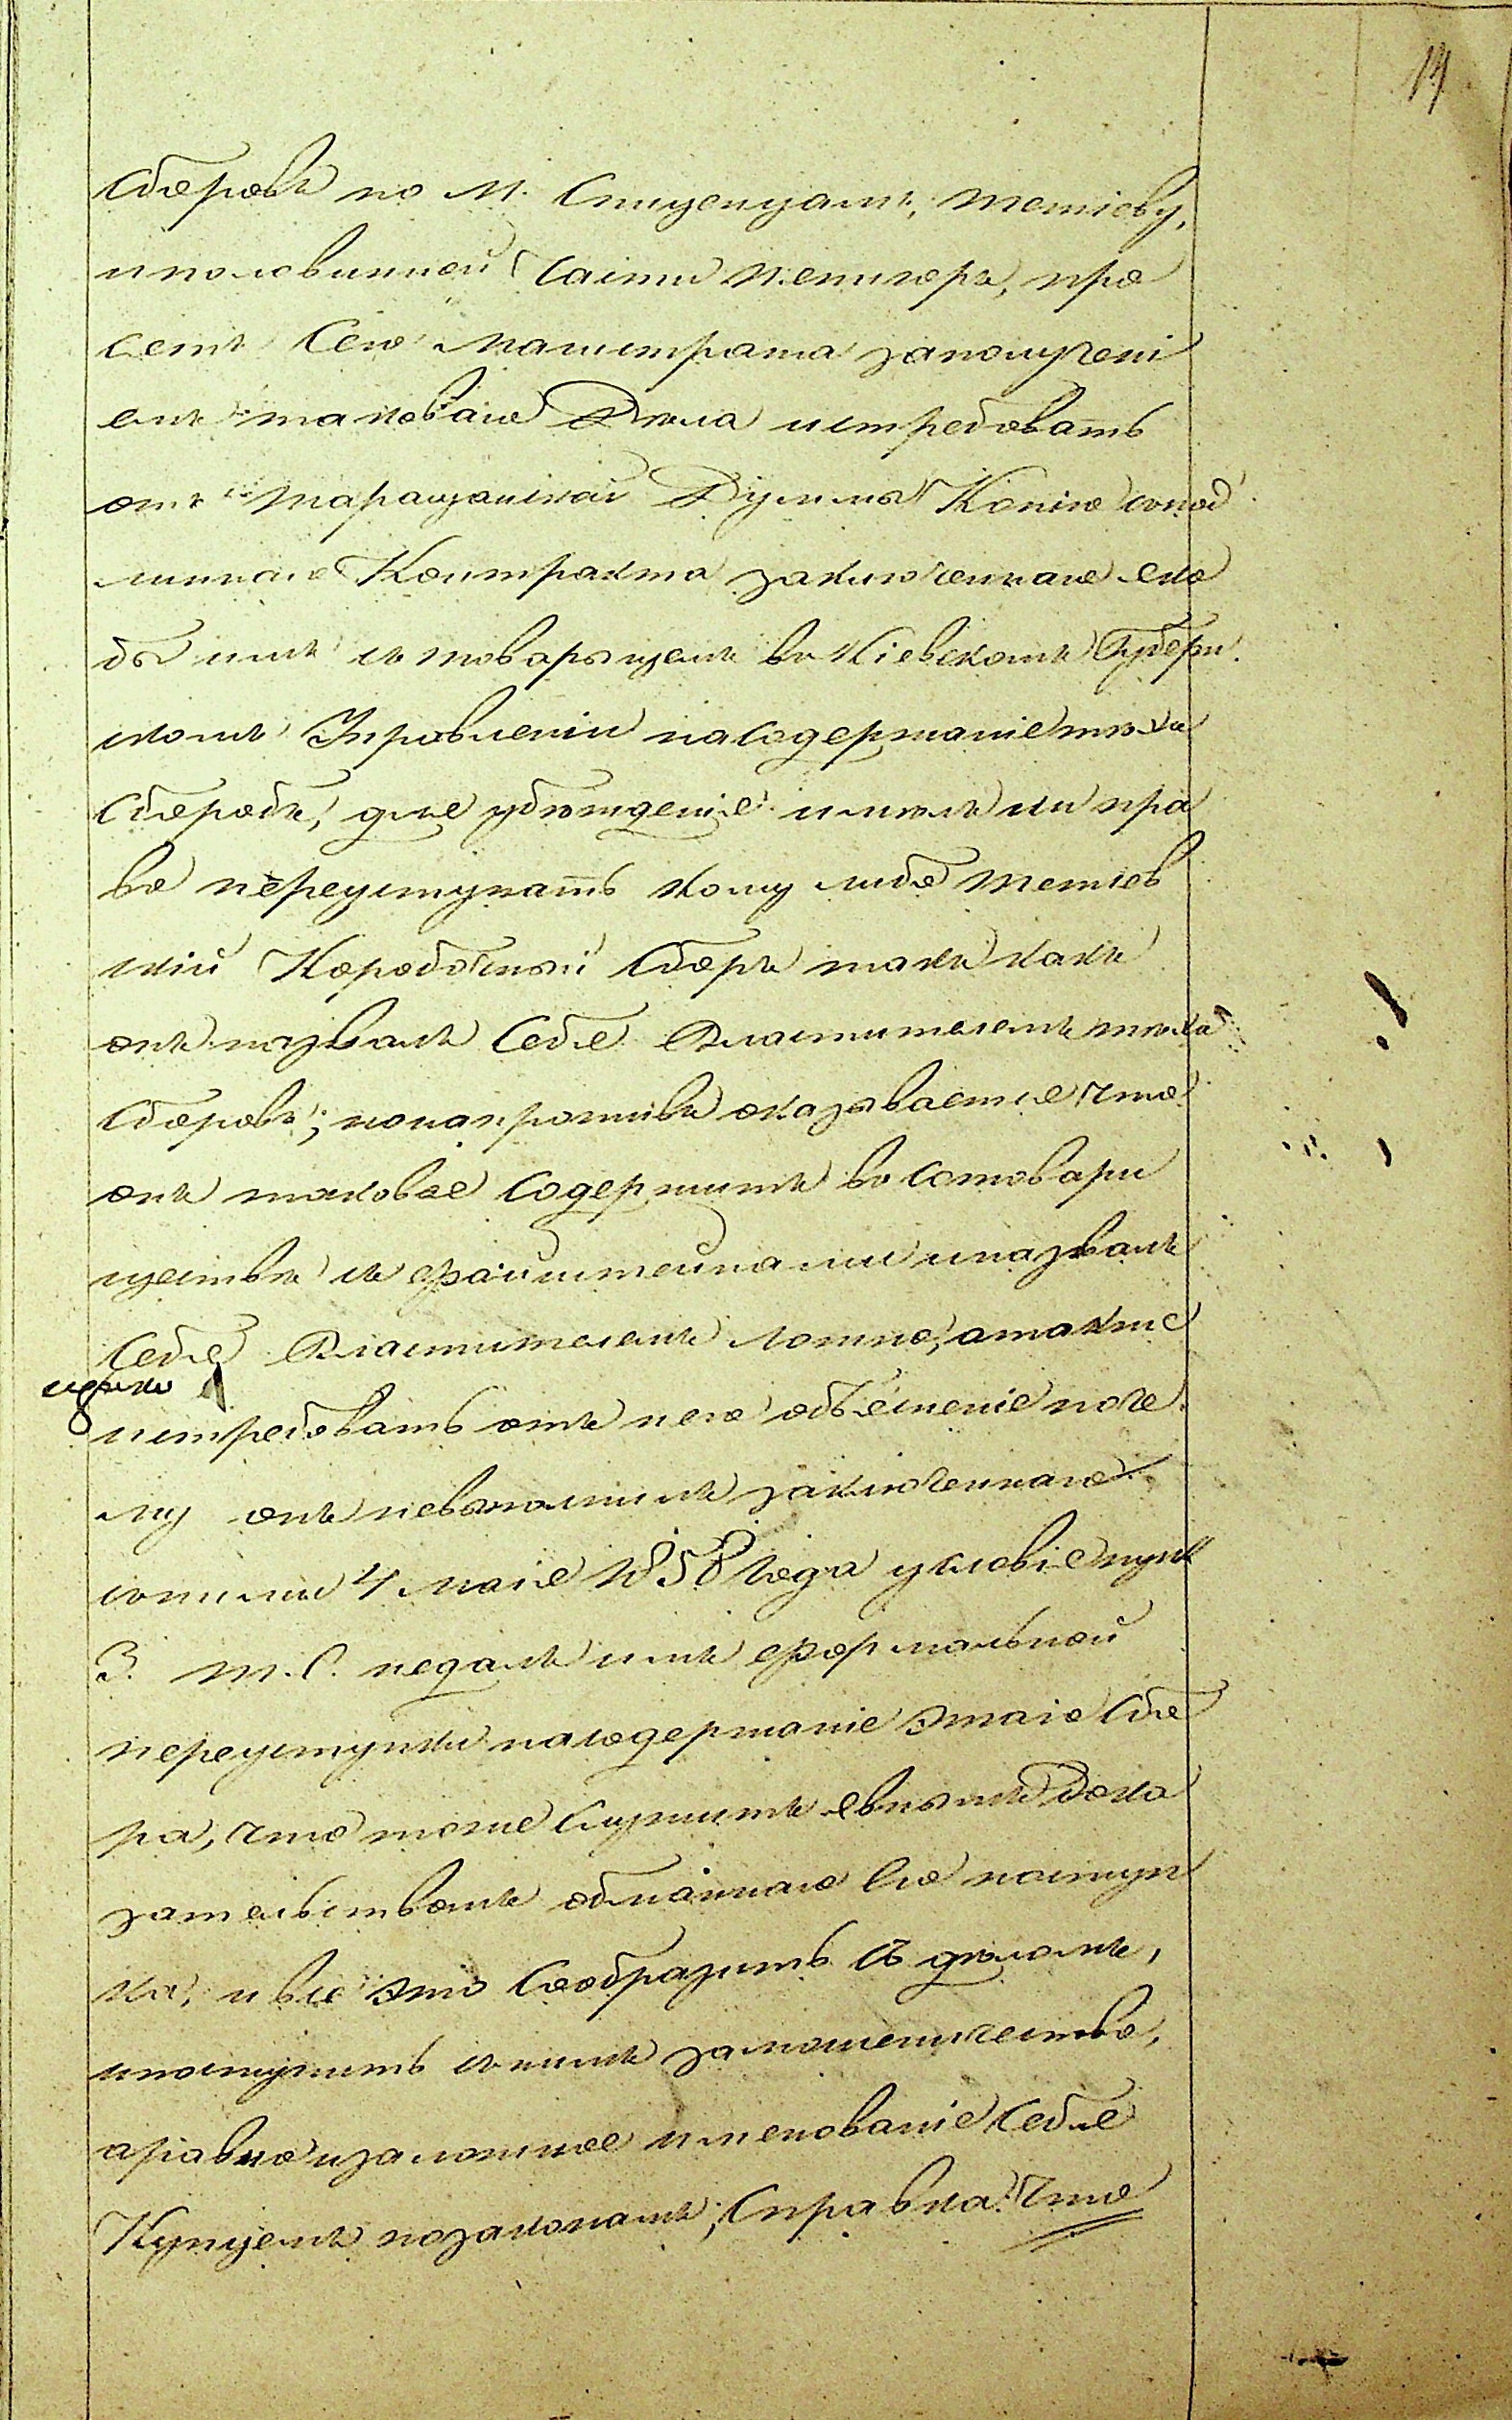 14
Сборовъ по М. Спиченцамъ, Тетіеву,
иполовинной Части Пятигоръ, про
ситъ Сего Магистрата заполучені
емъ таковаго Дѣла истребовать
отъ Таращанской Думы Копію спод
линнаго Контракта заключеннаго яко
бы имъ стоварыщемъ въ Кіевскомъ Губерн.
скомъ Управленіи насодержаніе тѣхъ
Сборовъ, для убѣжденія имѣлъ ли пра
во переуступать кому либо Тетіев
скій Коробочный Сборъ такъ какъ
онъ назвалъ Себя Властителемъ тѣхъ
Сборовъ; понапротивъ оказывается что
онъ таковые Содержитъ во Сотовари
ществѣ съ Файнштейнами иназвалъ
Себя Властителемъ ложно; атакже
истребовать отъ него объясненіе поче
му онъ невыполнилъ заключеннаго
сними 4 мая 1858 года условіе пунк
3. т.е. недалъ имъ формальной
переуступки насодержаніе этаго Сбо
ра, что тоже Служитъ явнымъ Дока
зательствомъ обманнаго Его поступ
ка, и все это Сообразить съ дѣломъ,
ипоступить снимъ замошенничество,
аравно изаложное именованіе Себя
Купцемъ позаконамъ; Справка: Что